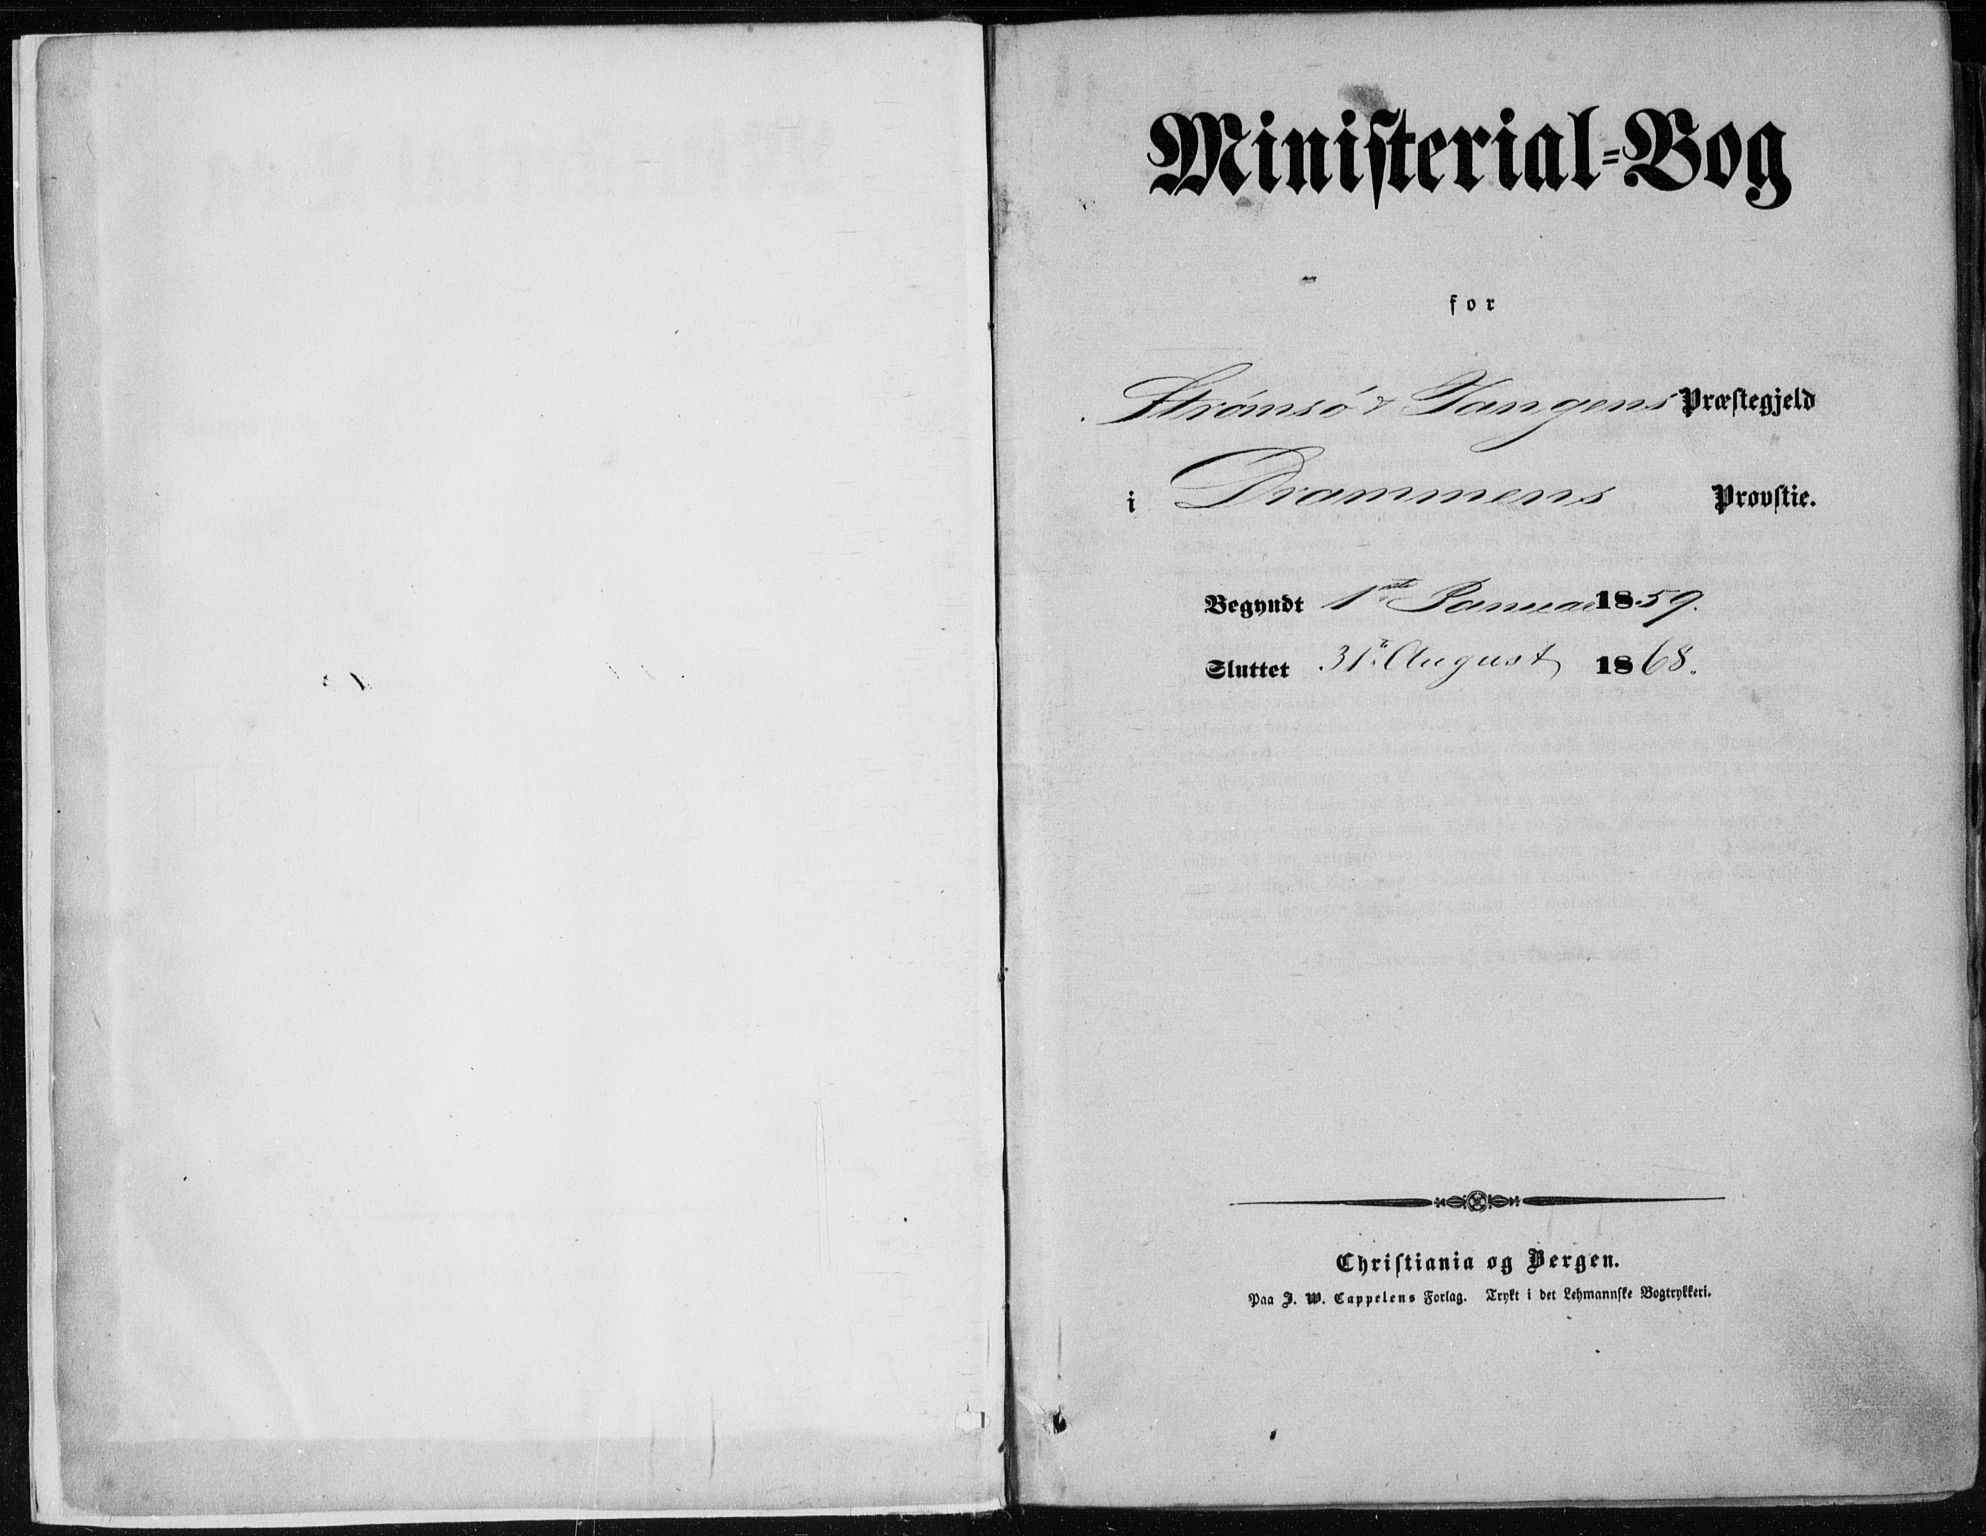 Ministerial-Bog
for
Strømsø & Tangens Præstegjeld
i Drammens Provstie.
Begyndt 1ste Januar 1859.
Sluttet 31te August 1868.
Christiania og Bergen.
Paa J. W. Cappelens Forlag. Trykt i det Lehmannske Bogtrykkeri.